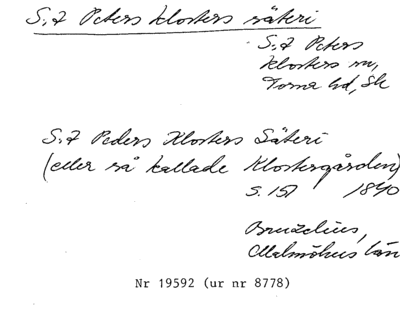 S:t Peters klosters säteri
S:t Peters
klosters sn,
Torna hd, Sk
S:t Peders Klosters Säteri
(eller så kallade Klostergården)
S. 151 1840
Bruzelius,
Malmöhus län
Nr 19592 (ur nr 8778)